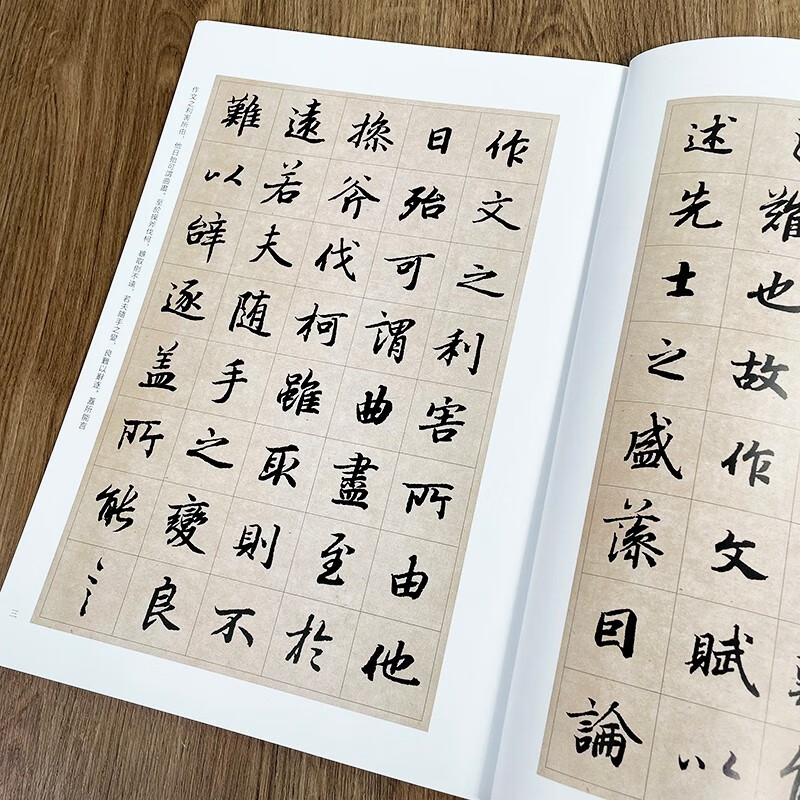 難也故作文賦以
述先士之盛藻因論
作文之利害所由他
日殆可謂曲盡至於
操斧伐柯雖取則不
遠若夫随手之變良
難以辭逐盖所能言
作文之利害所由，他日殆可謂曲盡。至於操斧伐柯，雖取則不遠，若夫隨手之變，良難以辭逐。蓋所能言
三